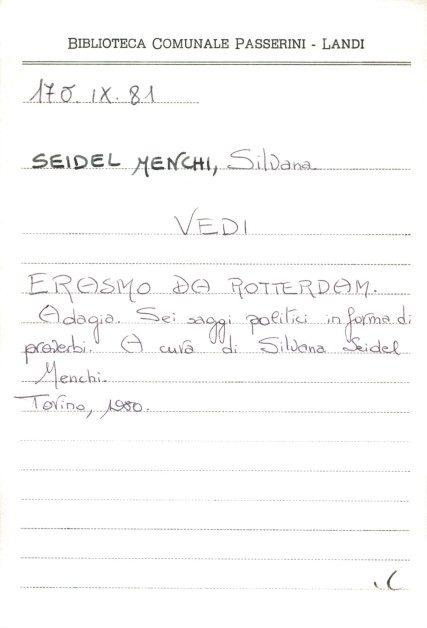 BIBLIOTECA COMUNALE PASSERINI - LANDI
170. IX. 81
SEIDEL MENCHI, Silvana
VEDI
ERASMO DA ROTTERDAM.
Adagia. Sei saggi politici in forma di
proverbi. A cura di Silvana Seidel
Menchi.
Torino, 1980.